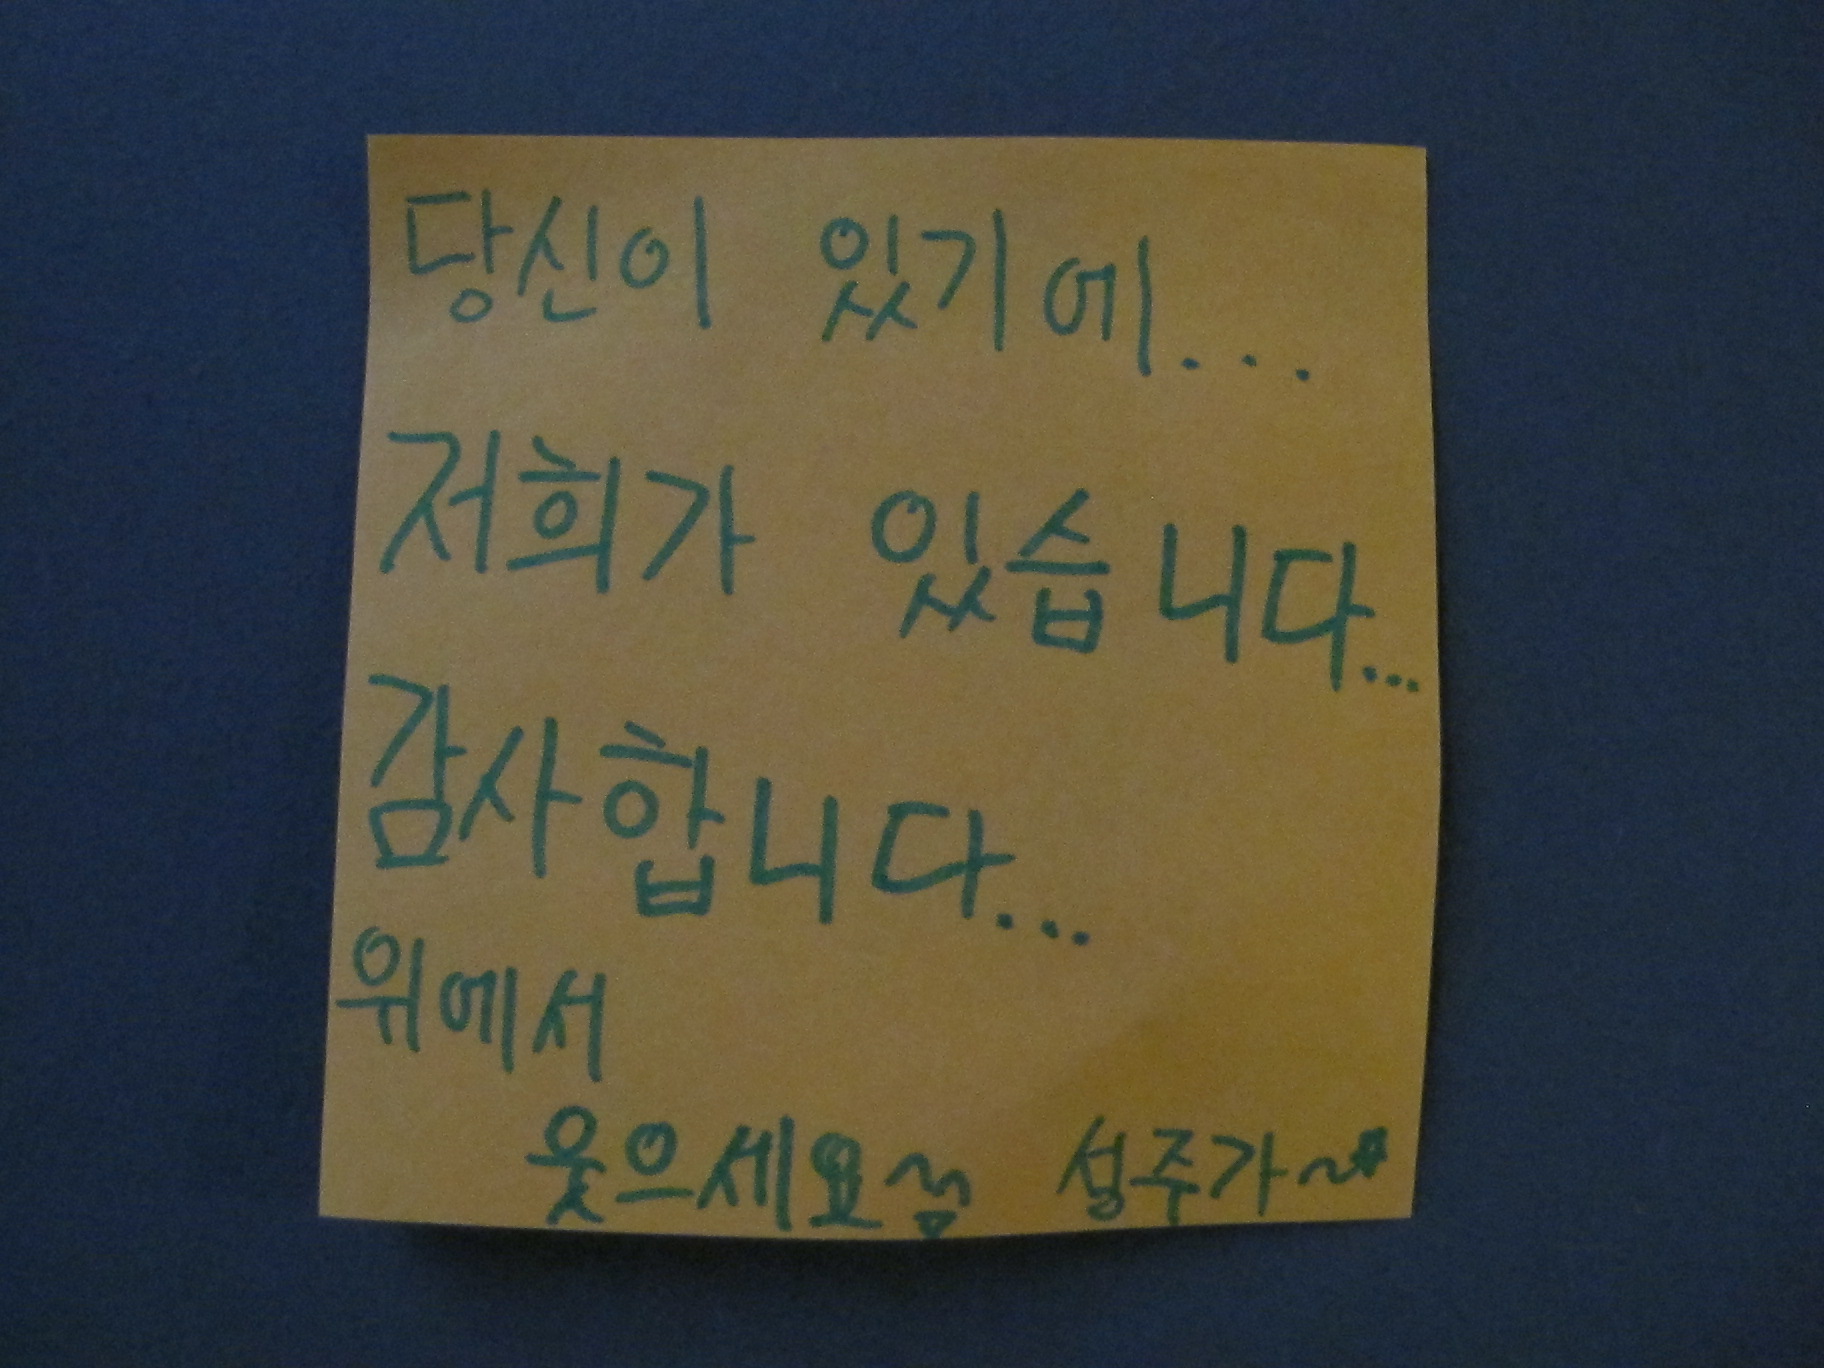 당신이 있기에...
저희가 있습니다...
감사합니다...
위에서
웃으세요~ 성주가~